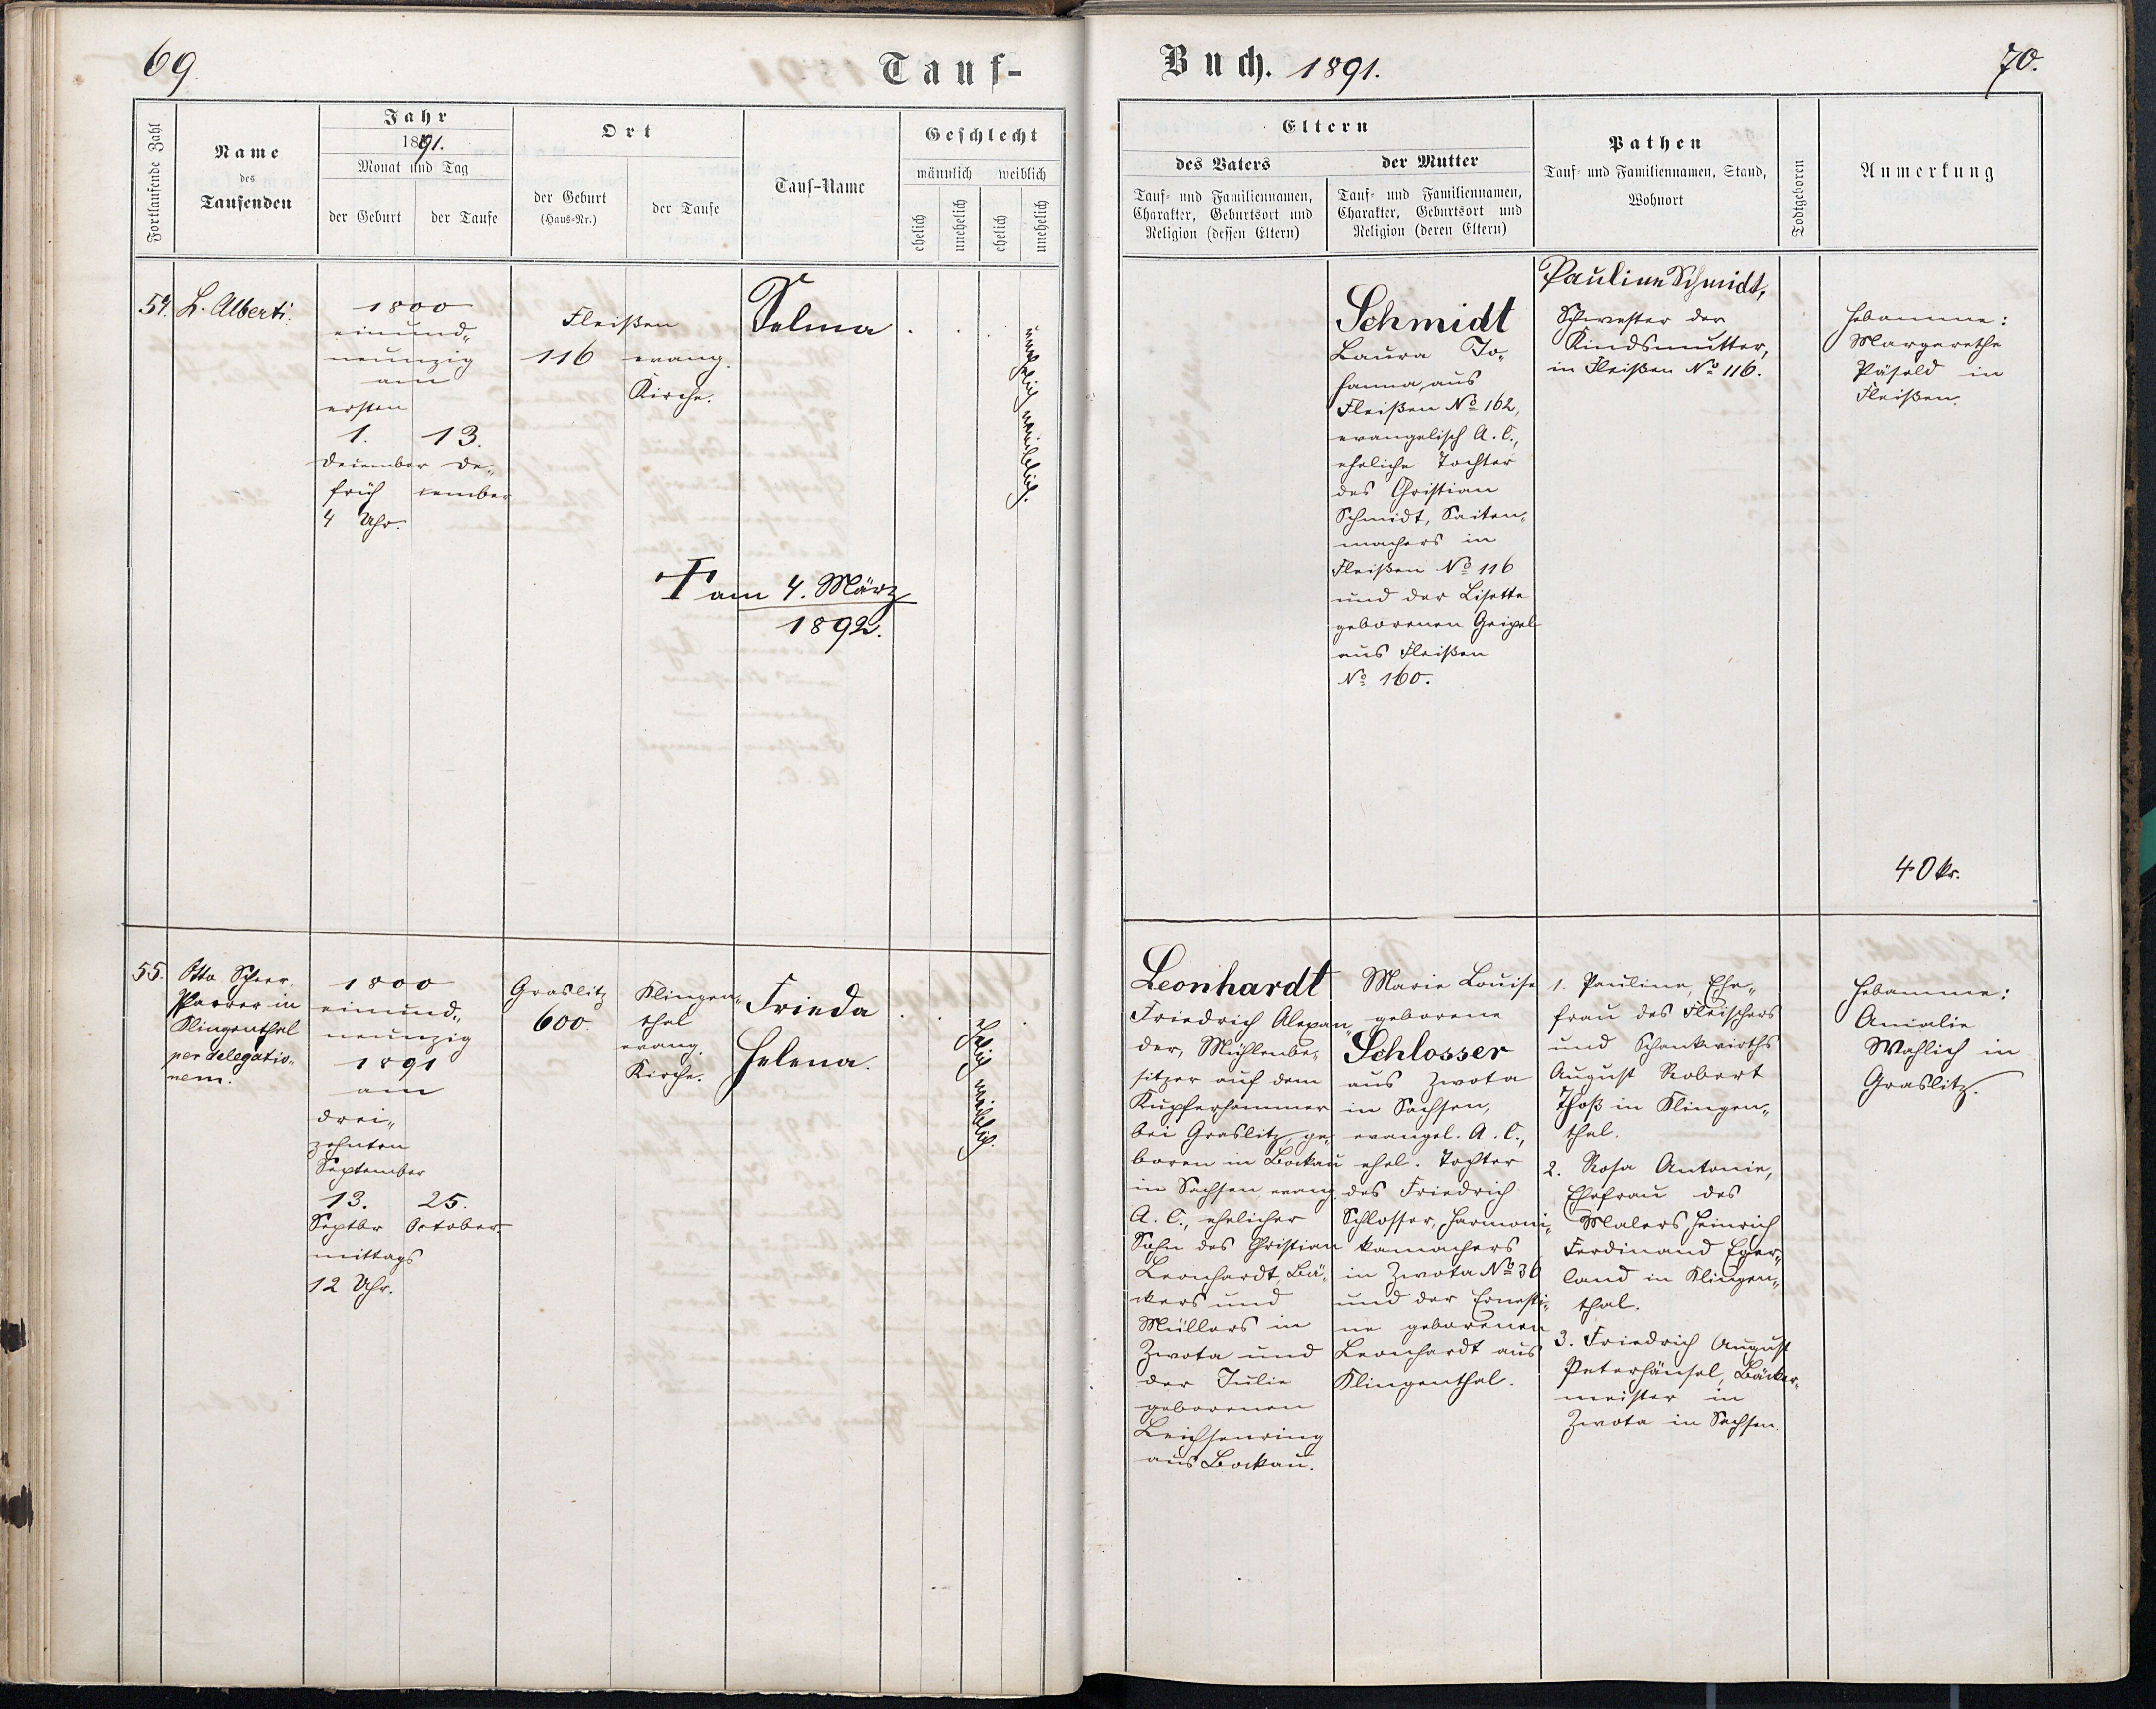 69.
Tauf-
Fortlaufende Zahl
Name
des
Taufenden
Jahr
1891.
Monat und Tag
der Geburt
der Taufe
Ort
der Geburt
(Haus-Nr.)
der Taufe
Tauf-Name
Geschlecht
männlich
weiblich
ehelich
unehelich
ehelich
unehelich
54.
L. Alberti.
1800
einund„
neunzig
am
ersten
1. 13.
December De„
früh cember
4 Uhr.
Fleißen
116 evang.
Kirche.
Selma
unehelich weiblich.
† am 4. März
1892.
55.
Otto Scheer.
Pfarrer in
Klingenthal
per delegatio„
nem.
1800
einund„
neunzig
1891
am
drei„
zehnten
September
13. 25.
Septbr October.
mittags
12 Uhr.
Graslitz
600.
Klingen„
thal
evang.
Kirche.
Frieda
Helena.
ehelich weiblich.
Buch. 1891.
70.
Eltern
des Vaters
der Mutter
Tauf- und Familiennamen,
Charakter, Geburtsort und
Religion (dessen Eltern)
Tauf- und Familiennamen,
Charakter, Geburtsort und
Religion (deren Eltern)
Pathen
Tauf- und Familiennamen, Stand,
Wohnort
Todtgeboren
Anmerkung
Schmidt
Laura Jo„
hanna, aus
Fleißen No 162,
evangelisch A. C.,
eheliche Tochter
des Christian
Schmidt, Saiten„
machers in
Fleißen No 116
und der Lisette
geborenen Geipel
aus Fleißen
No 160.
Pauline Schmidt,
Schwester der
Kindsmutter,
in Fleißen No 116.
Hebamme:
Margarethe
Päsold in
Fleißen.
40 kr.
Leonhardt
Friedrich Alexan„
der, Mühlenbe„
sitzer auf dem
Kupferhammer
bei Graslitz, ge„
boren in Bockau
in Sachsen evang.
A. C., ehelicher
Sohn des Christian
Leonhardt, Bä„
ckers und
Müllers in
Zwota und
der Julie
geborenen
Leichsenring
aus Bockau.
Marie Louise
geborene
Schlosser
aus Zwota
in Sachsen,
evangel. A. C.,
ehel. Tochter
des Friedrich
Schlosser, Harmoni„
kamachers
in Zwota No 36
und der Ernesti„
ne geborenen
Leonhardt aus
Klingenthal.
1. Pauline, Ehe„
frau des Fleischers
und Schankwirths
August Robert
Thoß in Klingen„
thal.
2. Rosa Antonie,
Ehefrau des
Malers Heinrich
Ferdinand Eger„
land in Klingen„
thal.
3. Friedrich August
Peterhänsel, Bäcker„
meister in
Zwota in Sachsen.
Hebamme:
Amalie
Wahlich in
Graslitz.